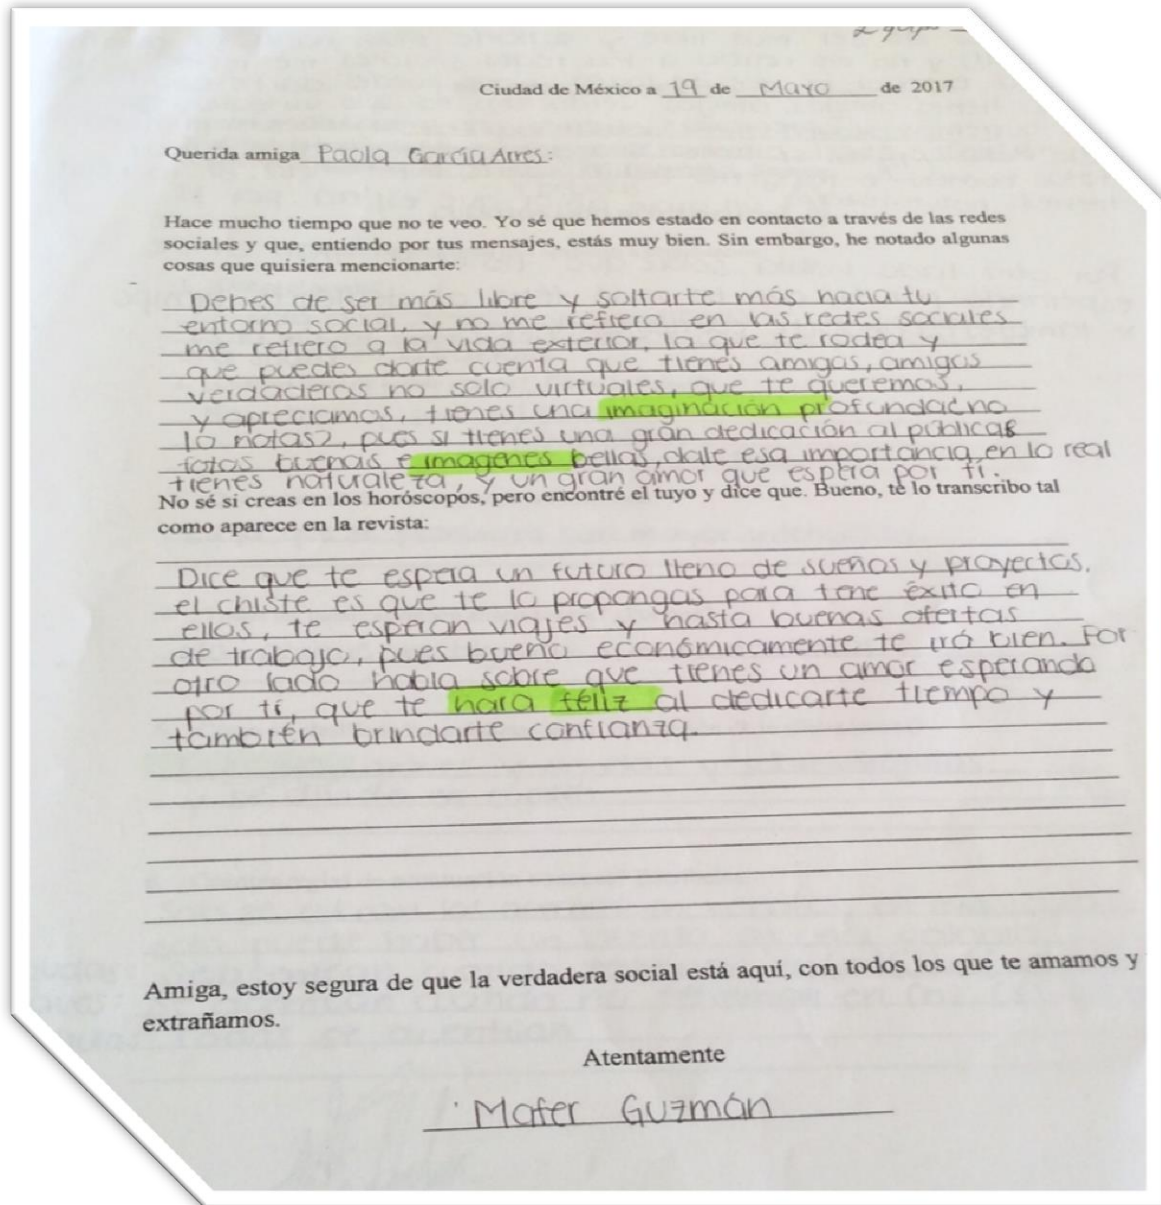 Ciudad de México a 19 de Mayo de 2017
Querida amiga Paola García Arres:
Hace mucho tiempo que no te veo. Yo sé que hemos estado en contacto a través de las redes
sociales y que, entiendo por tus mensajes, estás muy bien. Sin embargo, he notado algunas
cosas que quisiera mencionarte:
Debes de ser más libre y soltarte más hacia tu
entorno social, y no me refiero en las redes sociales
me refiero a la vida exterior, la que te rodea y
que puedes darte cuenta que tienes amigas, amigos
verdaderos no solo virtuales, que te queremos,
y apreciamos, tienes una imaginación profunda¿no
lo notas?, pues si tienes una gran dedicación al públicar
fotos buenas e imagenes bellas, dale esa importancia, en lo real
tienes naturaleza, y un gran amor que espera por ti.
No sé si creas en los horóscopos, pero encontré el tuyo y dice que. Bueno, te lo transcribo tal
como aparece en la revista:
Dice que te espera un futuro lleno de sueños y proyectos,
el chiste es que te lo propongas para tene éxito en
ellos, te esperan viajes y hasta buenas ofertas
de trabajo, pues bueno económicamente te irá bien. Por
otro lado habla sobre que tienes un amor esperando
por tí, que te hara féliz al dedicarte tiempo y
también brindarte confianza.
Amiga, estoy segura de que la verdadera social está aquí, con todos los que te amamos y
extrañamos.
Atentamente
Mafer Guzmán